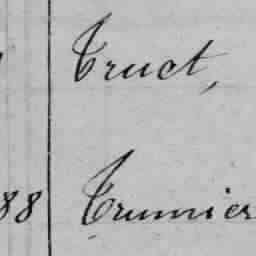 Truct,
88 Trumier